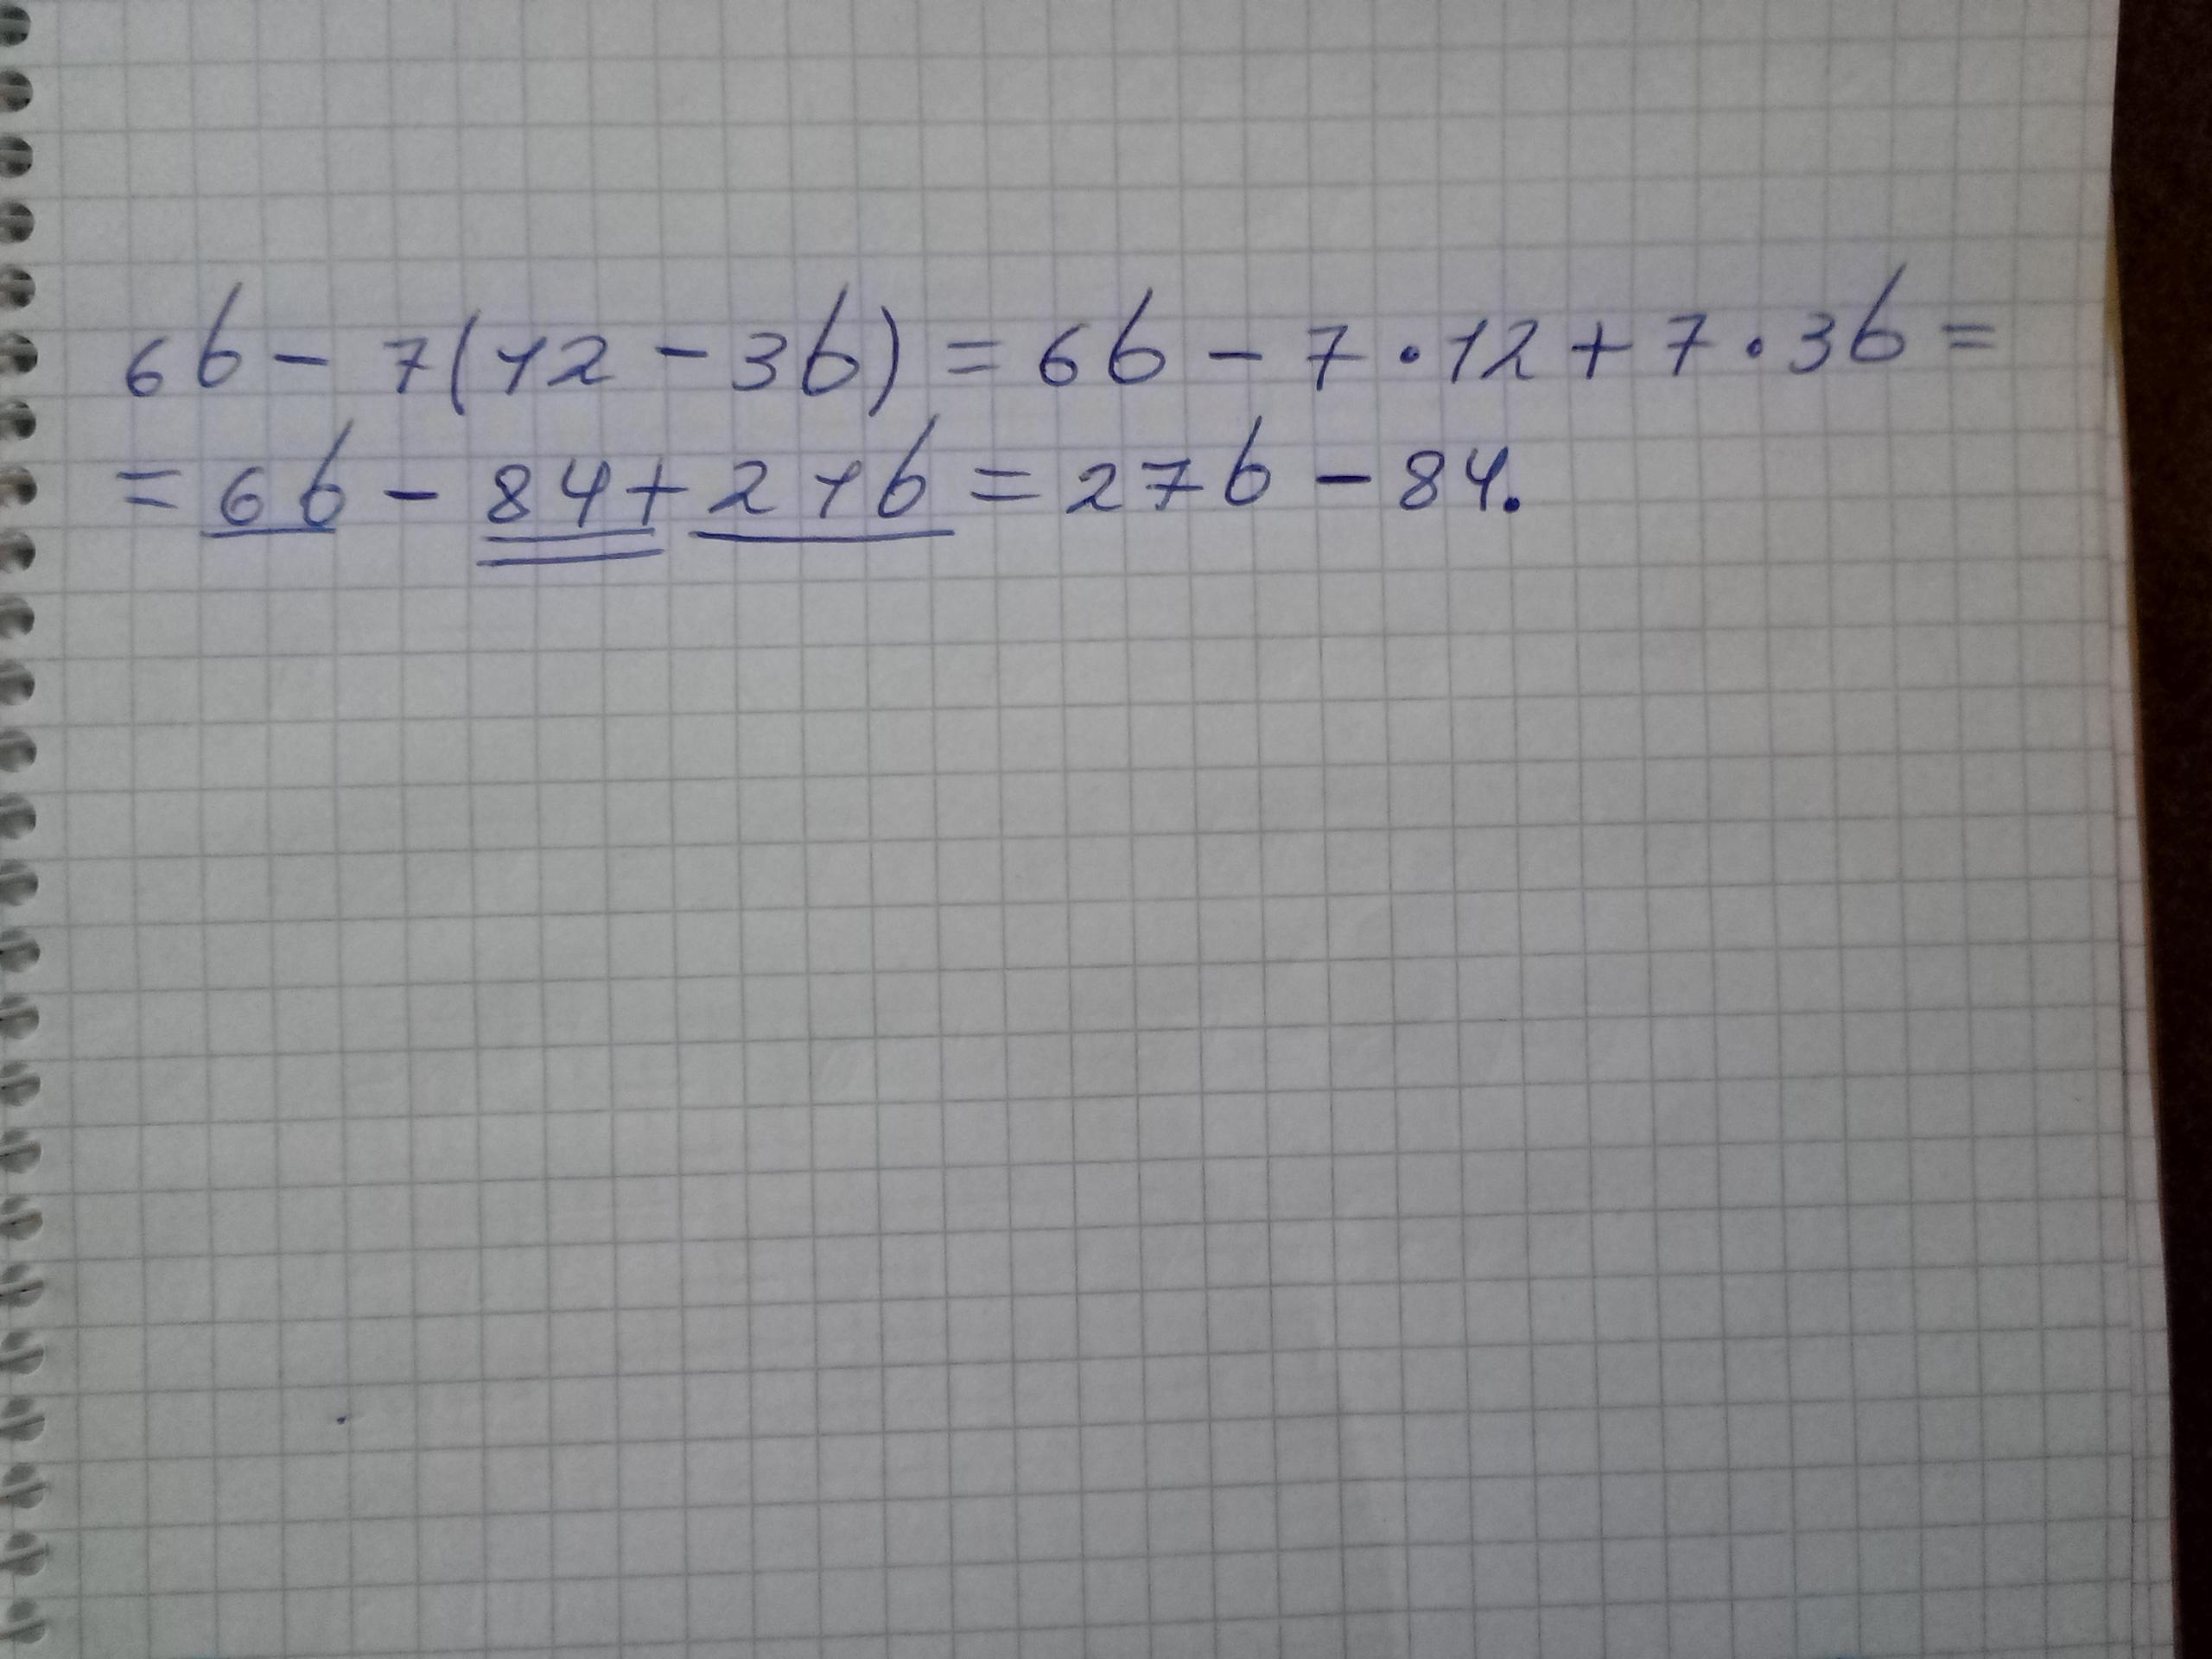 6b - 7(12 - 3b) = 6b - 7 · 12 + 7 · 3b =
= 6b - 84 + 21b = 27b - 84.